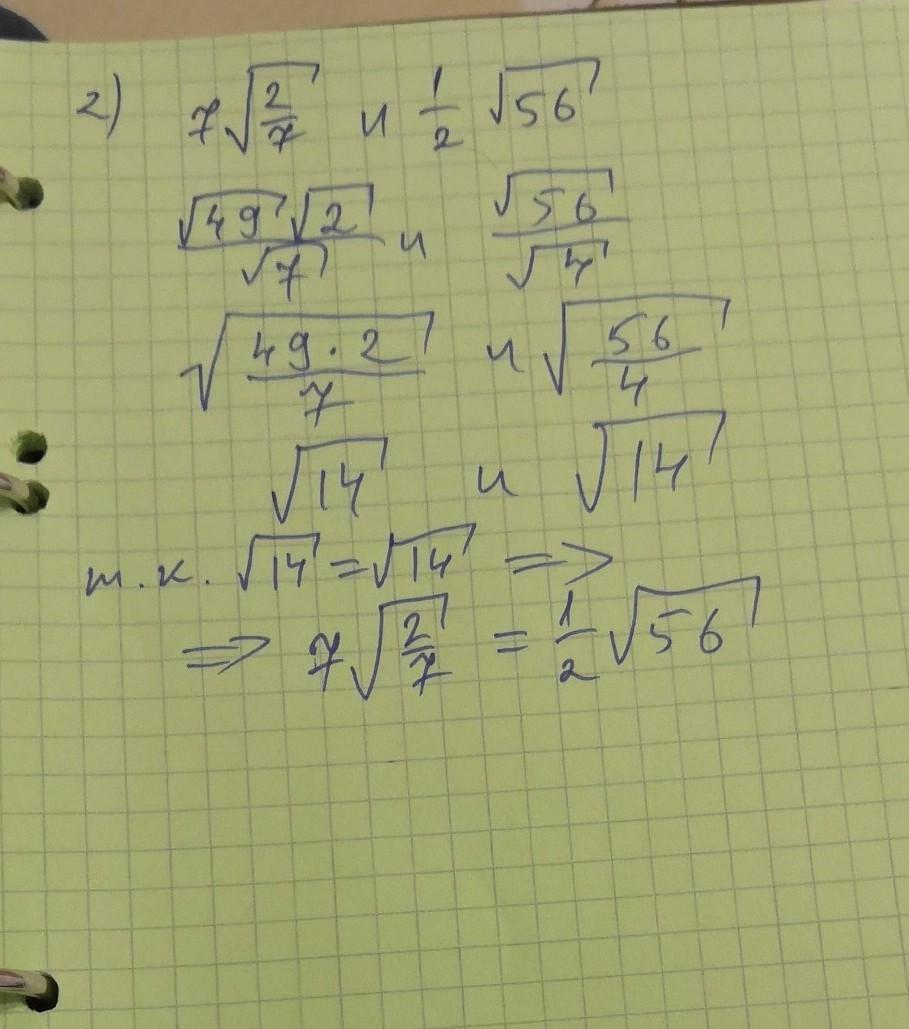 2) 7√(2/7) и 1/2 √56
√49 √2 / √7 и √56 / √4
√(49·2 / 7) и √(56 / 4)
√14 и √14
т.к. √14 = √14 =>
=> 7√(2/7) = 1/2 √56